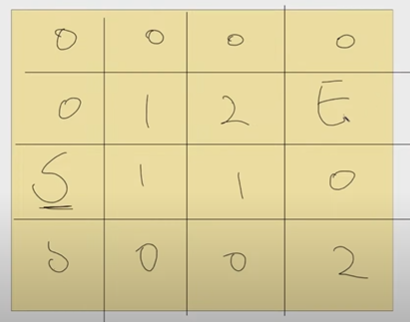 0 0 0 0
0 1 2 E
S 1 1 0
0 0 0 2